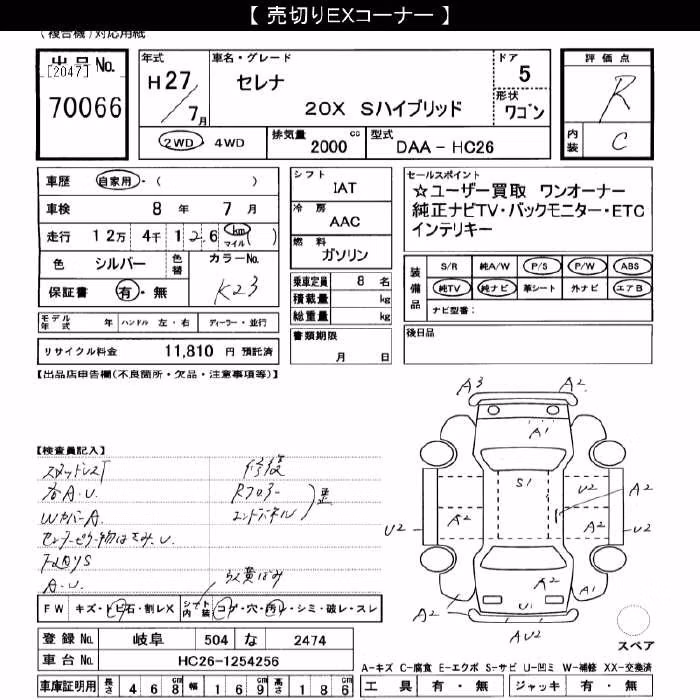 【 売切りEXコーナー 】
(複合機)対応用紙
出品No.
[2047]
70066
年式
H27
7月
車名・グレード
セレナ
20X Sハイブリッド
ドア
5
形状
ワゴン
評価点
R
内装
C
2WD・4WD
排気量
2000 cc
型式
DAA-HC26
車歴 自家用・( )
車検 8年 7月
走行 12万 4千 126 km マイル ( )
色 シルバー 色替 カラーNo.
保証書 有・無 K23
モデル年式 年 ハンドル 左・右 ディーラー・並行
リサイクル料金 11,810 円 預託済
シフト
IAT
冷房
AAC
燃料
ガソリン
乗車定員 8 名
積載量 kg
総重量 kg
書類期限
月 日
セールスポイント
☆ユーザー買取 ワンオーナー
純正ナビTV・バックモニター・ETC
インテリキー
装備品
S/R 純A/W P/S P/W ABS
純TV 純ナビ 革シート 外ナビ エアB
ナビ型番:
後日品
【出品店申告欄(不良箇所・欠品・注意事項等)】
【検査員記入】
修復
各A.U.
Rフロアー
WカバーA.
エンドパネル
歪
A.U.
FW キズ・トビ石・割レX シート内装 コゲ・穴・汚レ・シミ・破レ・スレ
登録No. 岐阜 504 な 2474
車台No. HC26-1254256
車庫証明用 長さ 468 cm 幅 169 cm 高さ 186 cm
A3
A2
A1
S1
U2
A2
A2
A2
U2
U2
A2
A1
U1
A2
A2
AU2
スペア
A-キズ C-腐食 E-エクボ S-サビ U-凹ミ W-補修 XX-交換済
工具 有・無 ジャッキ 有・無